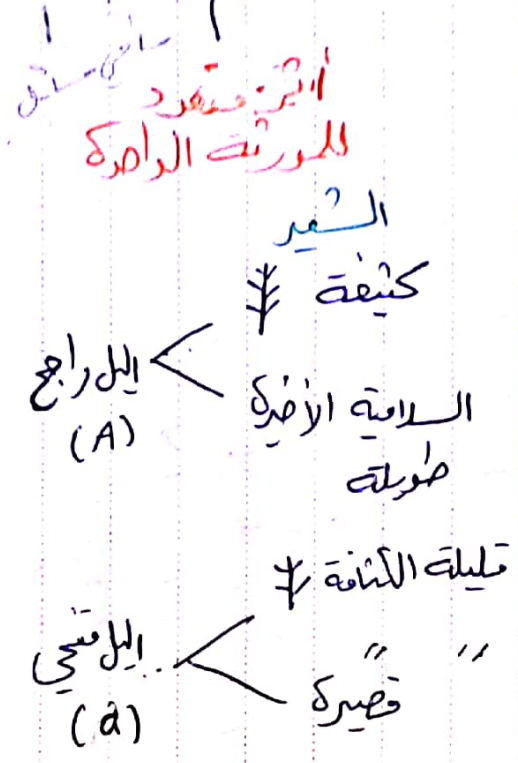 تأثير متعدد
للمورثة الواحدة
الشعير
كثيفة
اليل راجح
(A)
السلامية الأخيرة
طويلة
قليلة الكثافة
اليل متنحي
(a)
" "
قصيرة